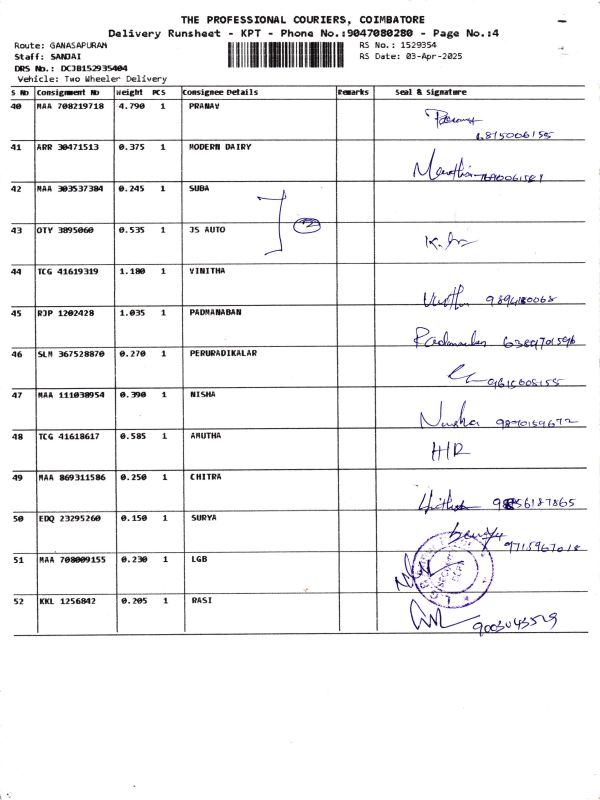 THE PROFESSIONAL COURIERS, COIMBATORE
Delivery Runsheet - KPT - Phone No.:9047080280 - Page No.:4
Route: GANASAPURAM RS No.: 1529354
Staff: SANJAI RS Date: 03-Apr-2025
DRS No.: DCJB152935404
Vehicle: Two Wheeler Delivery
S No Consignment No Weight PCS Consignee Details Remarks Seal & Signature
40 MAA 708219718 4.790 1 PRANAV
6815006155
41 ARR 30471513 0.375 1 MODERN DAIRY
42 MAA 303537384 0.245 1 SUBA
43 OTY 3895060 0.535 1 JS AUTO
44 TCG 41619319 1.180 1 VINITHA
9894180068
45 RJP 1202428 1.035 1 PADMANABAN
Padmanaban 6389701596
46 SLM 367528870 0.270 1 PERURADIKALAR
9615008155
47 MAA 111038954 0.390 1 NISHA
Nisha 9870159672
48 TCG 41618617 0.585 1 AMUTHA
H/R
49 MAA 869311586 0.250 1 CHITRA
50 EDQ 23295260 0.150 1 SURYA
9715967018
51 MAA 708009155 0.230 1 LGB
52 KKL 1256842 0.205 1 RASI
9003043529